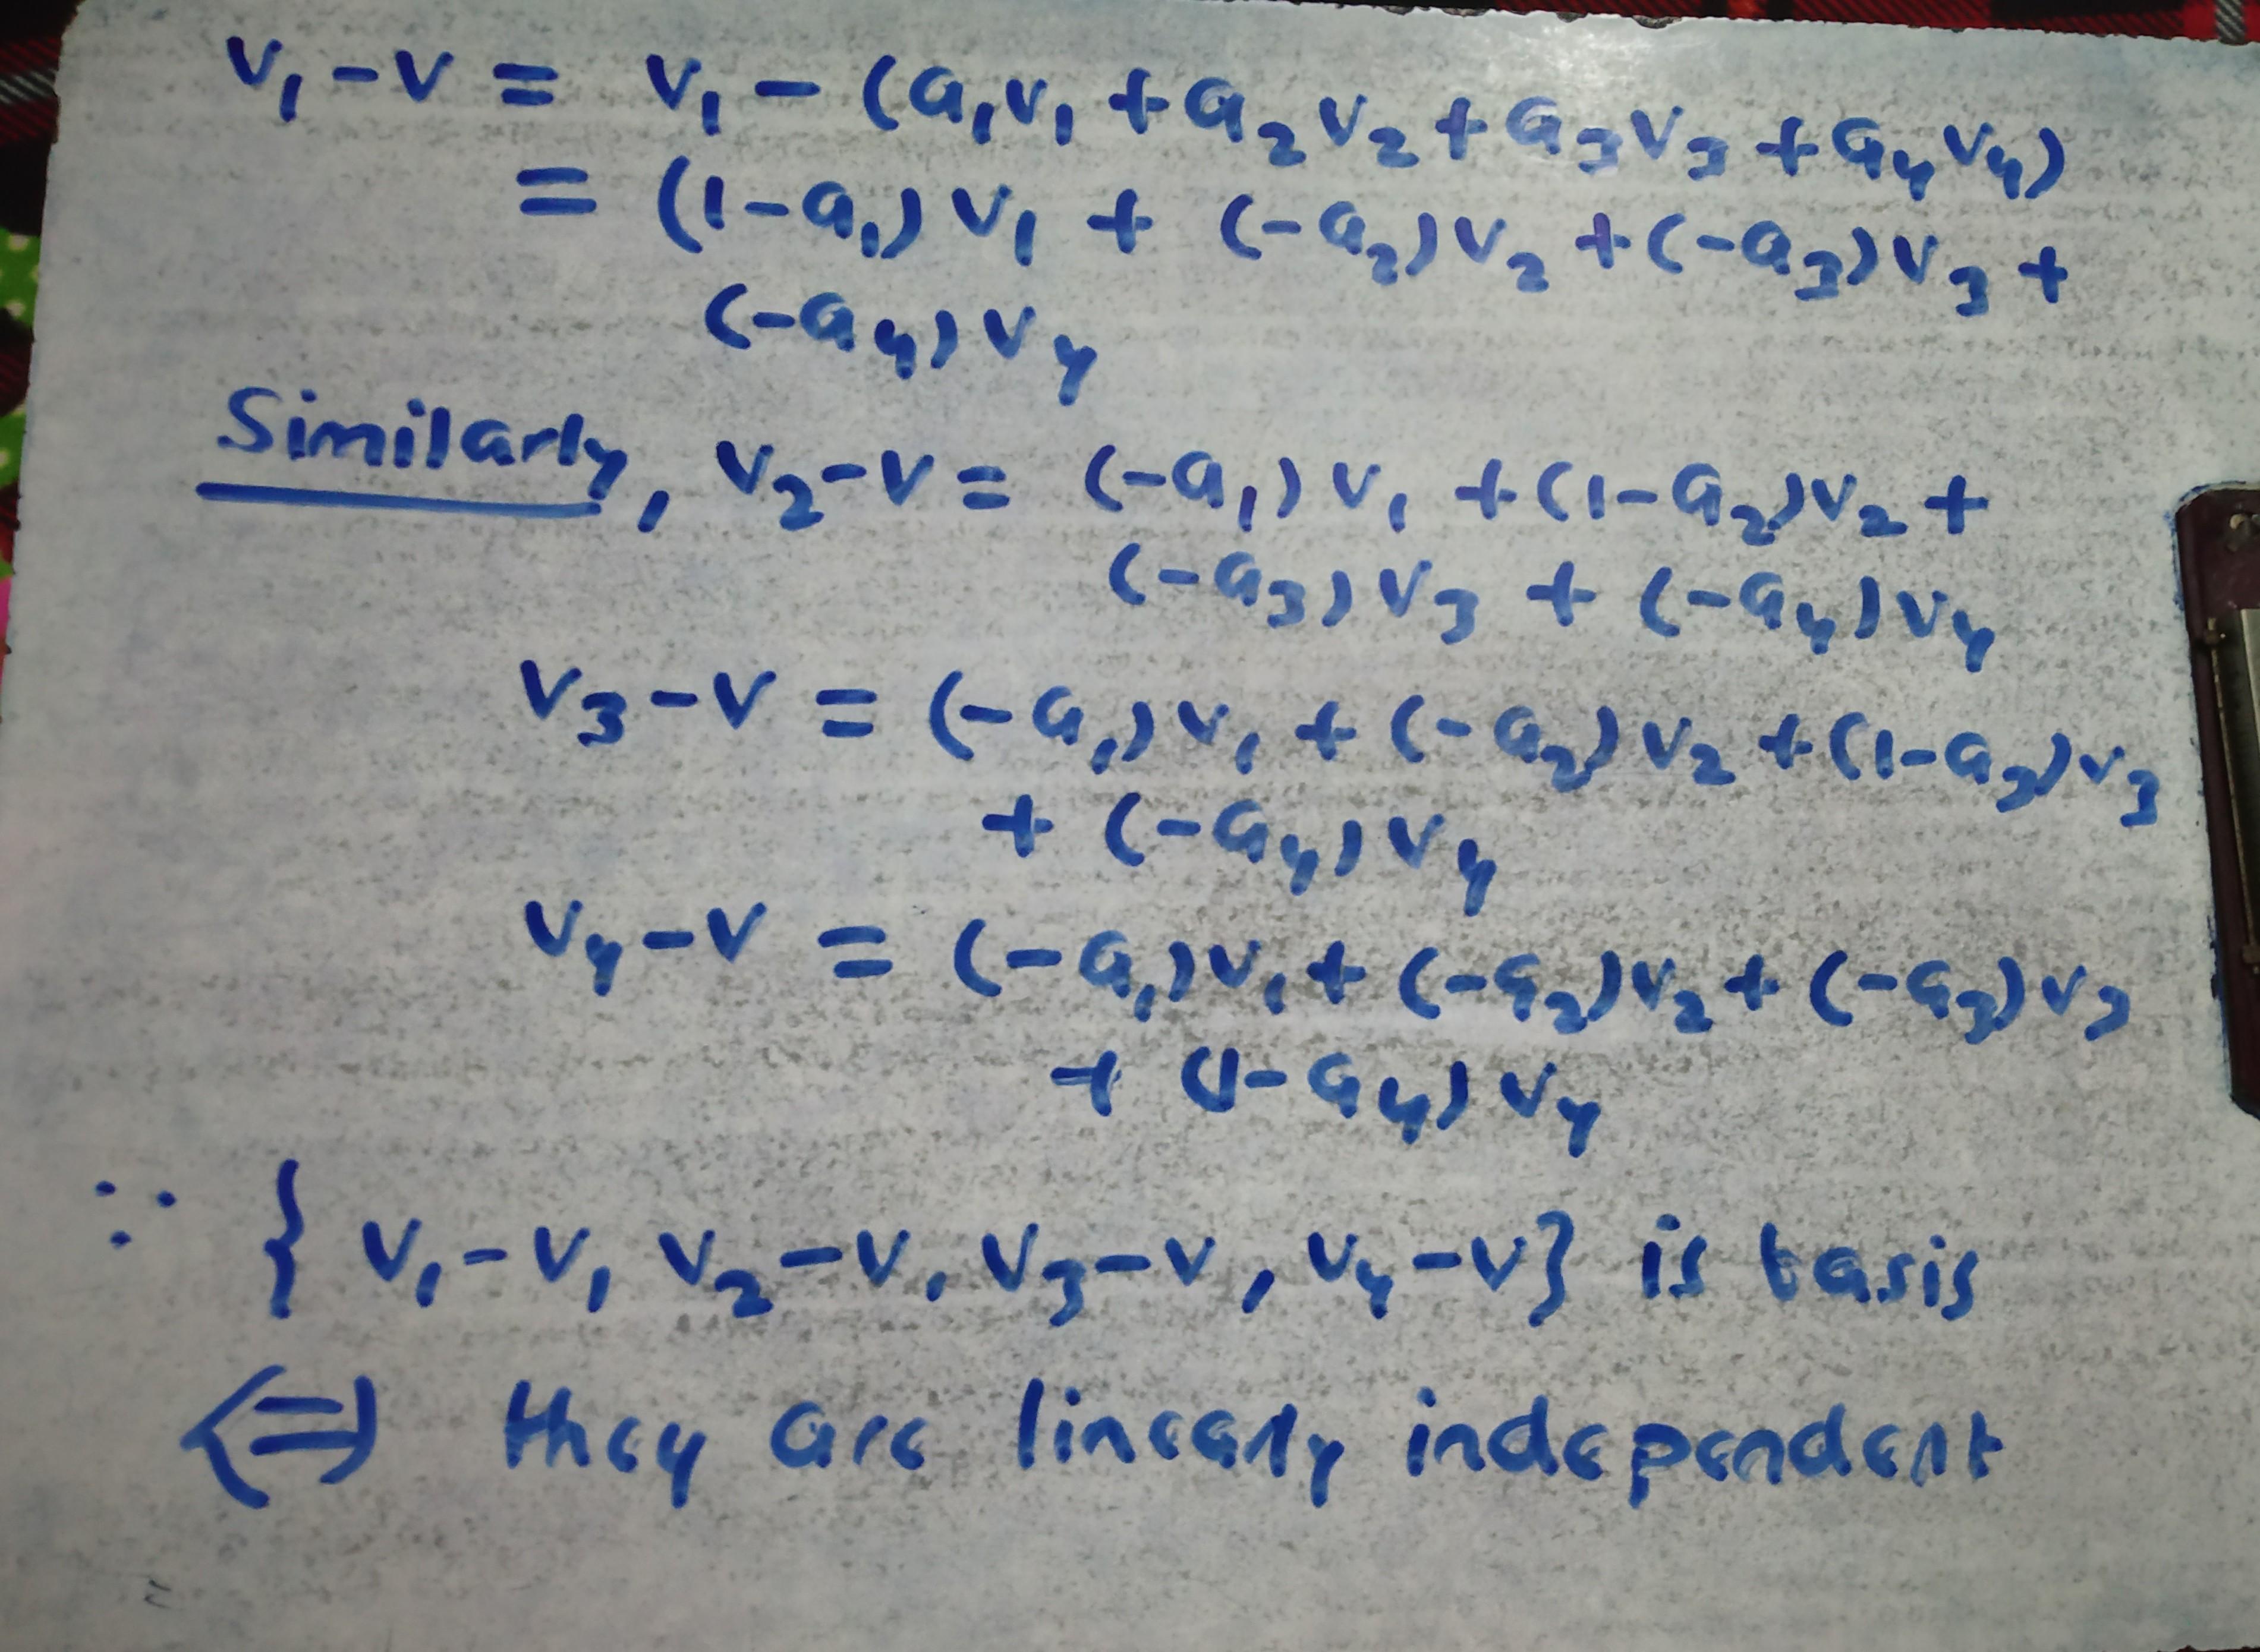 v₁ - v = v₁ - (a₁v₁ + a₂v₂ + a₃v₃ + a₄v₄)
= (1-a₁)v₁ + (-a₂)v₂ + (-a₃)v₃ +
(-a₄)v₄
Similarly, v₂-v = (-a₁)v₁ + (1-a₂)v₂ +
(-a₃)v₃ + (-a₄)v₄
v₃-v = (-a₁)v₁ + (-a₂)v₂ + (1-a₃)v₃
+ (-a₄)v₄
v₄-v = (-a₁)v₁ + (-a₂)v₂ + (-a₃)v₃
+ (1-a₄)v₄
∵ { v₁-v, v₂-v, v₃-v, v₄-v} is basis
⇔ they are linearly independent